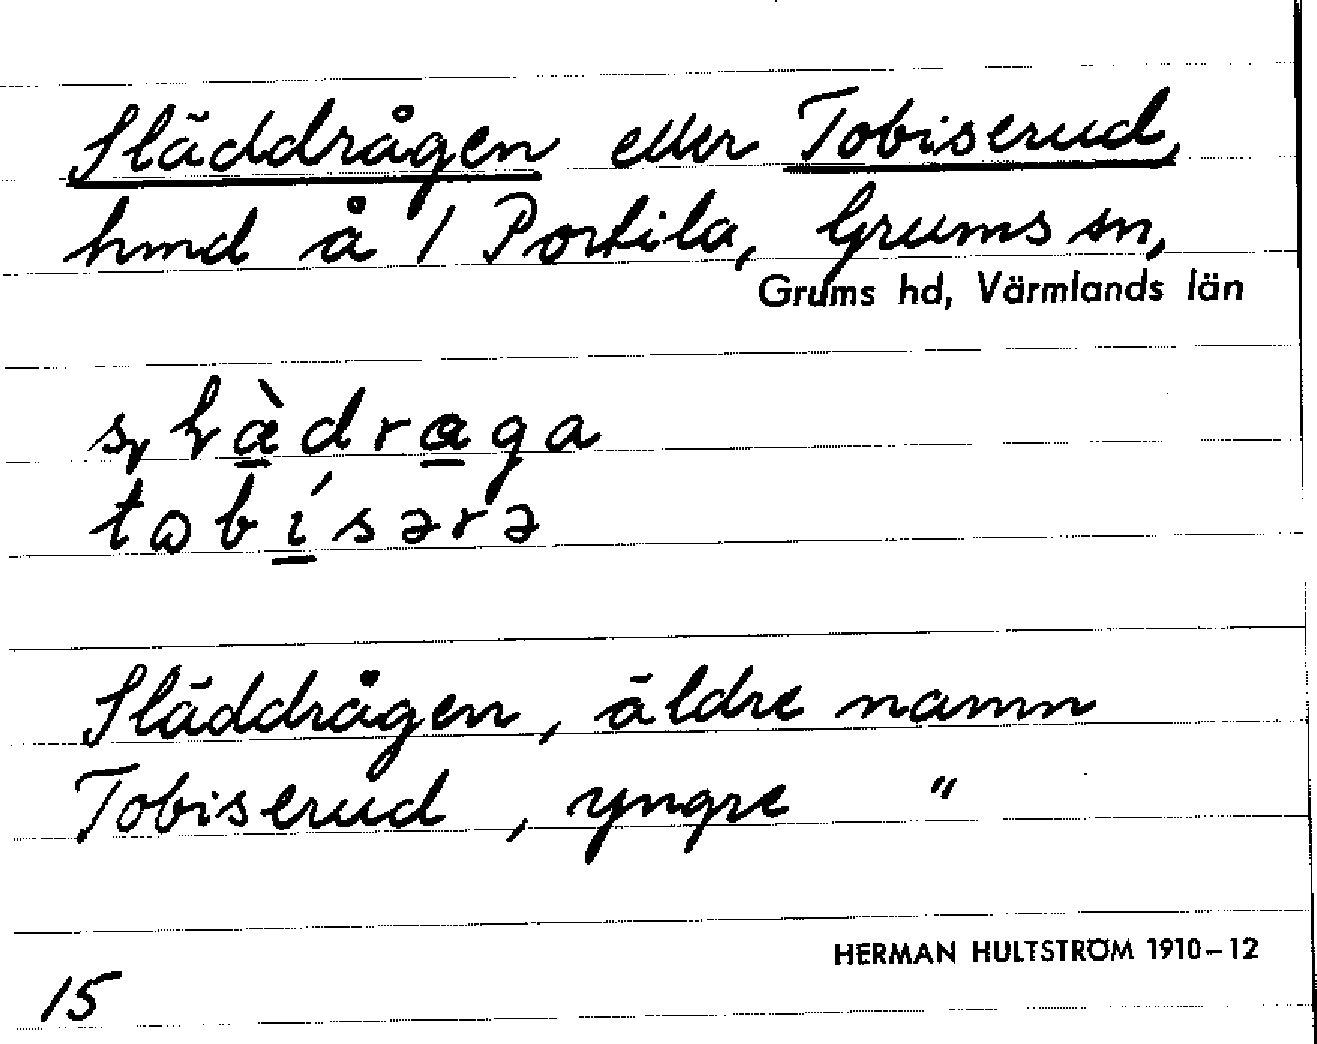 Släddrågen eller Tobiserud,
hmd å 1 Portila, Grums sn,
Grums hd, Värmlands län
tobísərə
Släddrågen, äldre namn
Tobiserud, yngre "
HERMAN HULTSTRÖM 1910-12
15